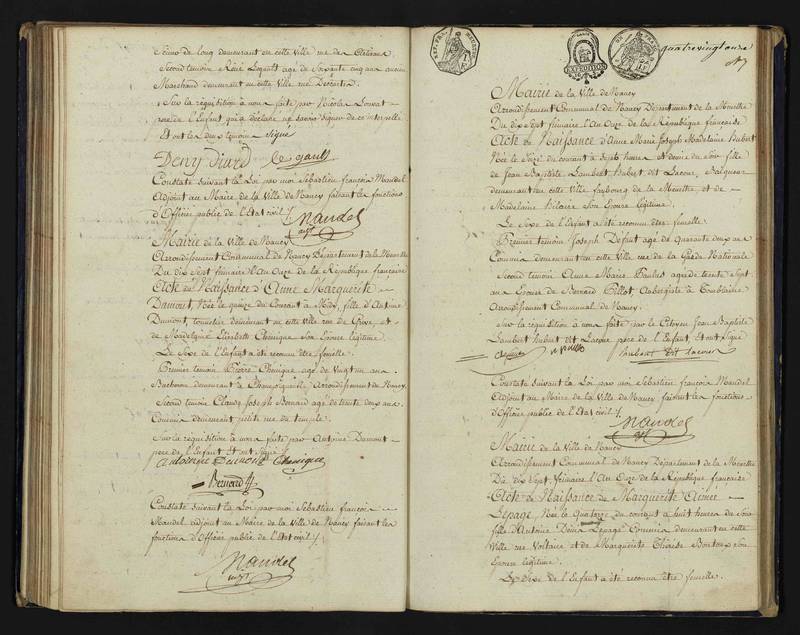 demeurant en cette Ville rue des Artisans.
Second temoin René Legarit agé de Soixante cinq ans ancien
Marchand demeurant en cette Ville rue Descartes.
Sur la requisition à nous faite par Nicolas
pere de l'Enfant qui a déclaré ne savoir signer de ce interpellé
Et ont les deux temoins Signé
Deny
Constaté suivant la Loi par moi Sébastien françois Mandel
Adjoint au Maire de la Ville de Nancy faisant les fonctions
d'Officier public de l'Etat civil /.
Mandel
adjt
Mairie de la Ville de Nancy
Arrondissement Communal de Nancy Département de la Meurthe
Du dix Sept frimaire l'An Onze de la République française
Acte de Naissance d'Anne Marguerite
Dumont, Née le quinze du Courant à Midy, fille d'Antoine
Dumont, tonnelier demeurant en cette Ville rue de Greve, et
de Madelaine Elizabeth Chenique Son Epouse légitime.
Le Sexe de l'Enfant a été reconnu être femelle.
Premier temoin Pierre Chenique agé de vingt un ans
demeurant à Champigneulle Arrondissement de Nancy.
Second temoin Claude Joseph Bernard agé de trente deux ans.
Commis demeurant petite rue du temple.
Sur la requisition à nous faite par Antoine Dumont
pere de l'Enfant Et ont Signé
antoine Dumont Chenique
Bernard
Constaté suivant la Loi par moi Sébastien françois
Mandel adjoint au Maire de la Ville de Nancy faisant les
fonctions d'Officier public de l'Etat civil /.
Mandel
adjt
quatrevingt onze
Mairie de la Ville de Nancy
Arrondissement Communal de Nancy Département de la Meurthe
Du dix Sept frimaire l'An Onze de la République française
Acte de Naissance d'Anne Marie Joseph Madelaine Hubert
Née le Seize du courant à Sept heures et demie du Soir fille
de Jean Baptiste Lambert Hubert dit Lacour,
demeurant en cette Ville faubourg de la Meurthe, et de
Madelaine Hilaire Son Epouse légitime.
Le Sexe de l'Enfant a été reconnu être femelle.
Premier temoin Joseph Défaut agé de quarante deux ans
Commis demeurant en cette Ville rue de la Garde Nationale
Second temoin Anne Marie Paulus agée de trente Sept
ans Epouse de Bernard Pillot, Aubergiste à Tomblaine
Arrondissement Communal de Nancy.
Sur la requisition à nous faite par le Citoyen Jean Baptiste
Lambert hubert dit Lacour pere de l'Enfant, Et ont Signé
Lambert dit lacour
Constaté suivant la Loi par moi Sébastien françois Mandel
Adjoint au Maire de la Ville de Nancy faisant les fonctions
d'Officier public de l'Etat civil /.
Mandel
adjt
Mairie de la Ville de Nancy
Arrondissement Communal de Nancy Département de la Meurthe
Du dix Sept frimaire l'An Onze de la République française
Acte de Naissance de Marguerite Aimée
Lepage, Née le Quatorze du courant à huit heures du Soir
fille d'Antoine Lepage Commis demeurant en cette
Ville rue Voltaire et de Marguerite Thérèse Bonton Son
Epouse légitime.
Le Sexe de l'Enfant a été reconnu être femelle.